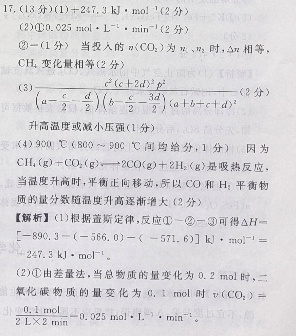 17.(13分)(1)+247.3 kJ·mol⁻¹(2分)
(2)①0.025 mol·L⁻¹·min⁻¹(2分)
②一(1分) 当投入的n(CO₂)为n₁、n₂时,Δn相等,
CH₄变化量相等(2分)
(3) c²(c+2d)²p² / (a-c/2-d/2)(b-c/2-3d/2)(a+b+c+d)² (2分)
升高温度或减小压强(1分)
(4)900 ℃(800~900 ℃间均给分,1分) 因为
CH₄(g)+CO₂(g)⇌2CO(g)+2H₂(g)是吸热反应,
当温度升高时,平衡正向移动,所以CO和H₂平衡物
质的量分数随温度升高逐渐增大(2分)
【解析】(1)根据盖斯定律,反应①-②-③可得ΔH=
[-890.3-(-566.0)-(-571.6)] kJ·mol⁻¹=
+247.3 kJ·mol⁻¹。
(2)①由差量法,当总物质的量变化为0.2 mol时,二
氧化碳物质的量变化为0.1 mol时v(CO₂)=
0.1 mol / 2 L×2 min =0.025 mol·L⁻¹·min⁻¹。